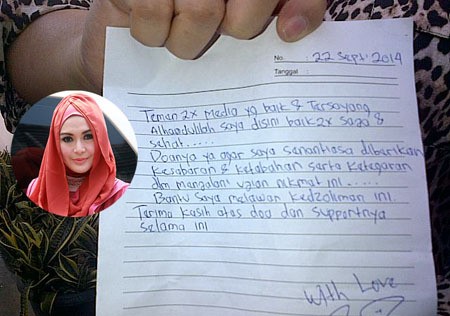 No. 22 Sept. 2014
Tanggal
Temen 2x Media yg baik & Tersayang
Alhamdulilah saya disini baik2x saja &
sehat.....
Doanya ya agar saya senantiasa diberikan
Kesabaran & ketabahan serta Ketegaran
dlm menjalani ujian nikmat ini......
Bantu saya melawan kedzoliman ini
Terima kasih atas doa dan supportnya
selama ini
With Love